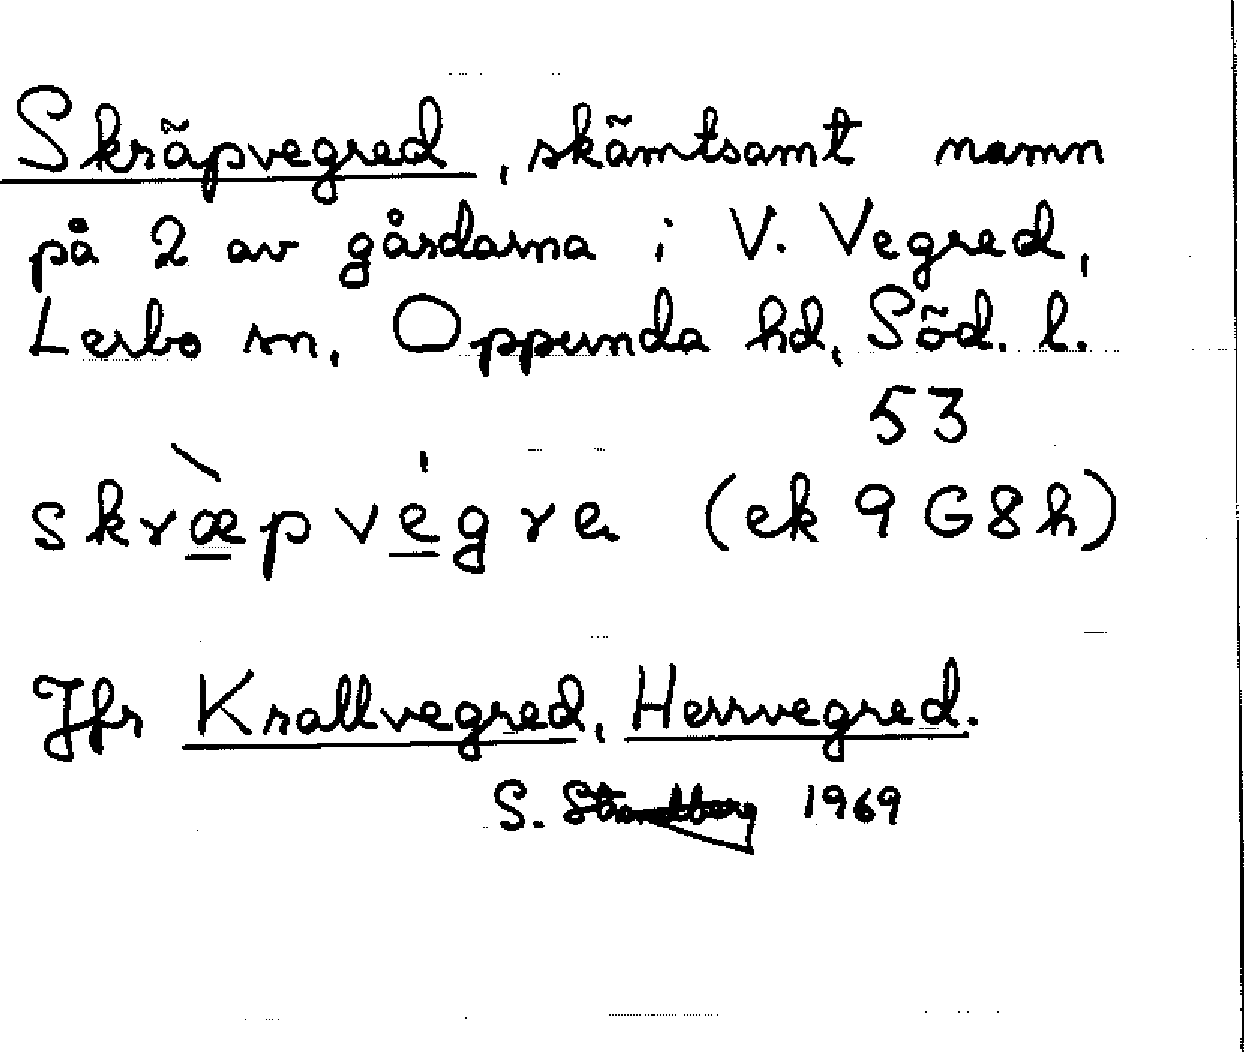 Skräpvegred, skämtsamt namn
på 2 av gårdarna i V. Vegred,
Lerbo sn, Oppunda hd, Söd. l.
53
skræ̀pvégre (ek 9G8h)
Jfr Krallvegred, Herrvegred.
S. Strandberg 1969